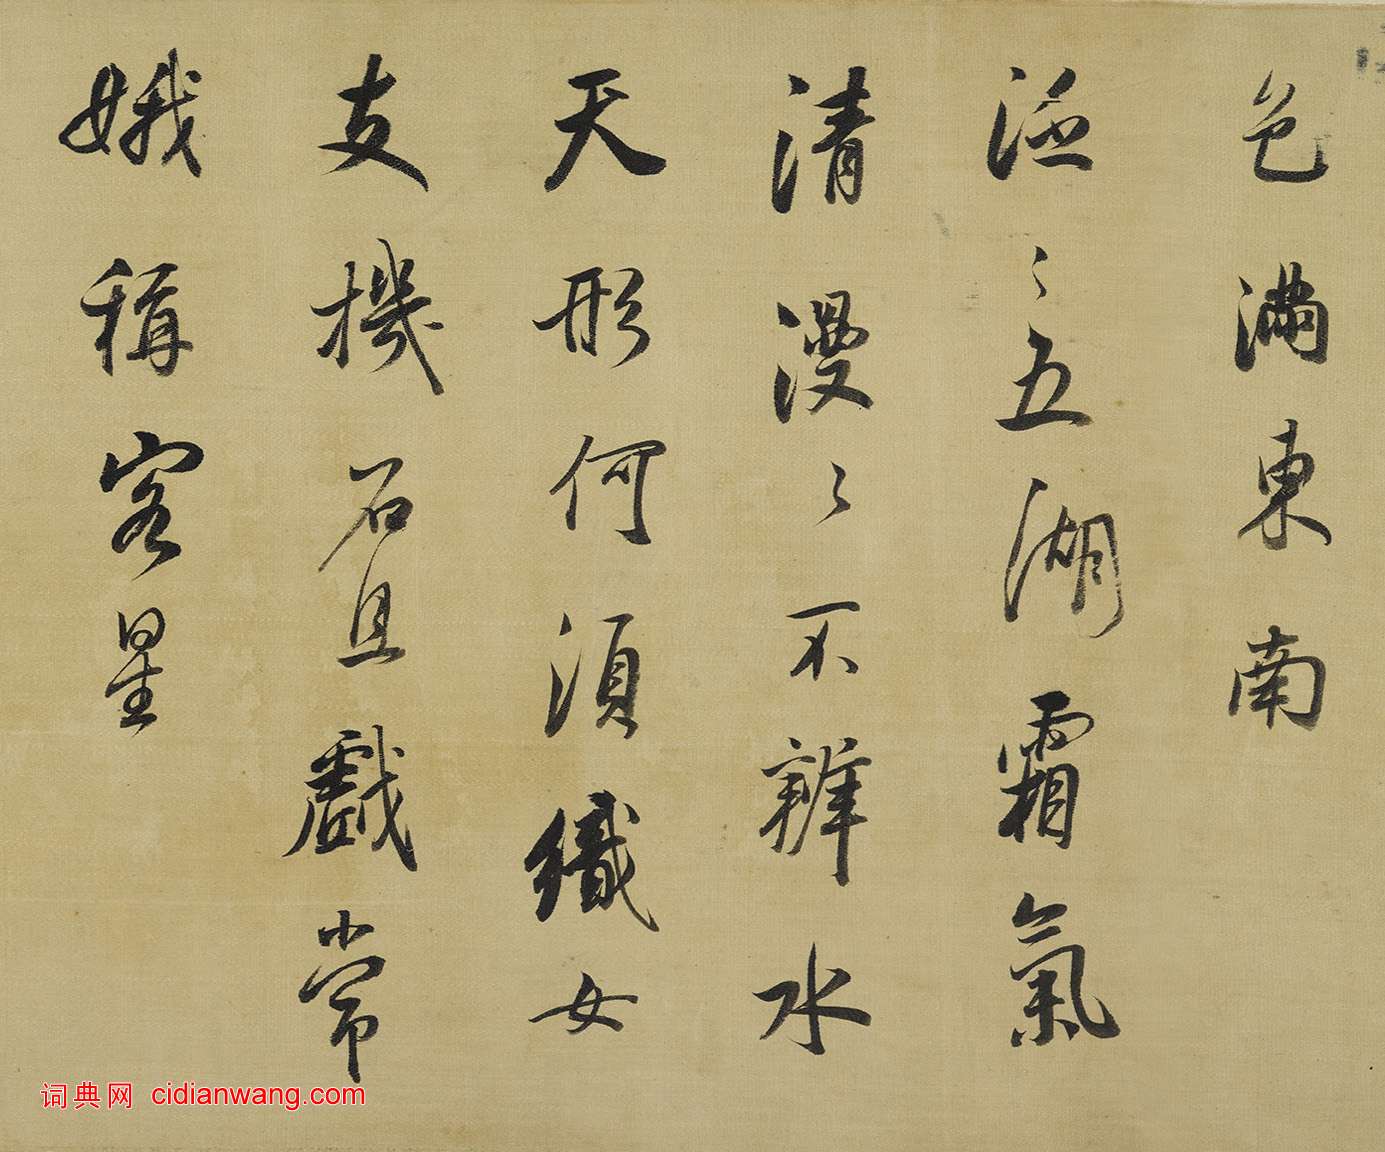 色滿東南
泛〻五湖霜氣
清漫〻不辨水
天形何須織女
支機石且戲常
娥稱客星
词典网 cidianwang.com